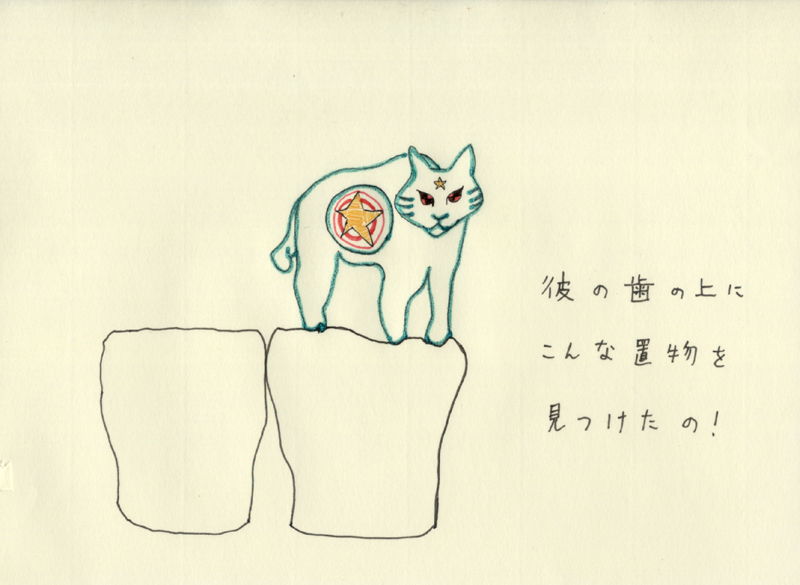 彼の歯の上に
こんな置物を
見つけたの!